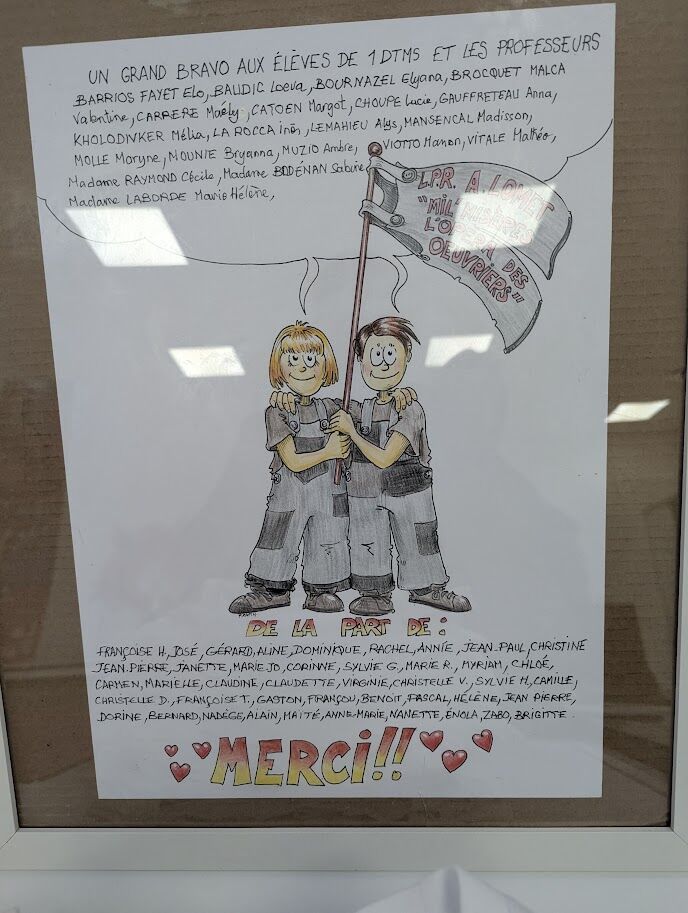 UN GRAND BRAVO AUX ÉLÈVES DE 1DTMS ET LES PROFESSEURS
BARRIOS FAYET Elo, BAUDIC Loeva, BOURNAZEL Elyana, BROCQUET MALCA
Valentine, CARRERE Maëly, CATOEN Margot, CHOUPE Lucie, GAUFFRETEAU Anna,
KHOLODIVKER Mélia, LA ROCCA Inès, LEMAHIEU Alys, MANSENCAL Madisson,
MOLLE Maryne, MOUNIE Bryanna, MUZIO Ambre, VIOTTO Manon, VITALE Mathéo,
Madame RAYMOND Cécile, Madame BODÉNAN Sabine
Madame LABORDE Marie Hélène,
L.P.R. A. LOMET
"MIL'MISÈRES
L'OPÉRA DES
OEUVRIERS"
DE LA PART DE :
FRANÇOISE H, JOSÉ, GÉRARD, ALINE, DOMINIQUE, RACHEL, ANNIE, JEAN-PAUL, CHRISTINE
JEAN-PIERRE, JANETTE, MARIE.JO, CORINNE, SYLVIE G, MARIE R., MYRIAM, CHLOÉ,
CARMEN, MARIELLE, CLAUDINE, CLAUDETTE, VIRGINIE, CHRISTELLE V., SYLVIE M, CAMILLE,
CHRISTELLE D., FRANÇOISE T., GASTON, FRANÇOU, BENOIT, PASCAL, HÉLÈNE, JEAN PIERRE,
DORINE, BERNARD, NADÈGE, ALAIN, MAÏTÉ, ANNE-MARIE, NANETTE, ENOLA, ZABO, BRIGITTE.
MERCI!!